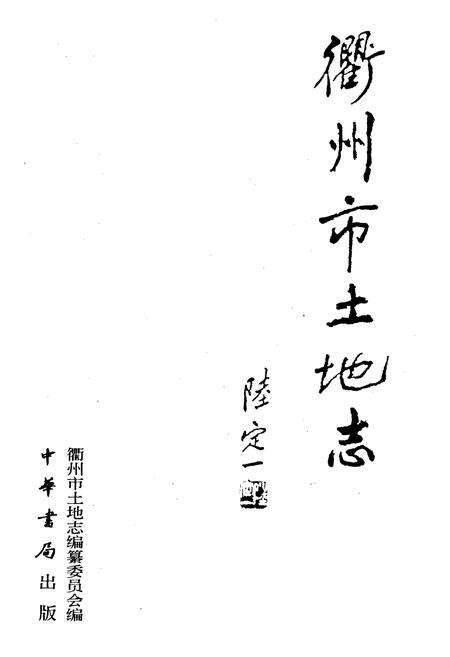 衢州市土地志
陸定一
衢州市土地志编纂委员会编
中華書局出版